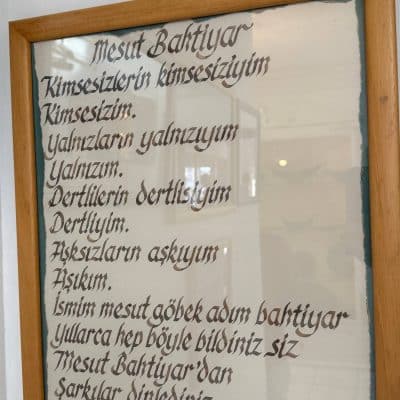 Mesut Bahtiyar
Kimsesizlerin kimsesiziyim
Kimsesizim.
Yalnızların yalnızıyım
Yalnızım.
Dertlilerin dertlisiyim
Dertliyim.
Aşksızların aşkıyım
Aşıkım.
İsmim mesut göbek adım bahtiyar
Yıllarca hep böyle bildiniz siz
Mesut Bahtiyar'dan
Şarkılar dinlediniz